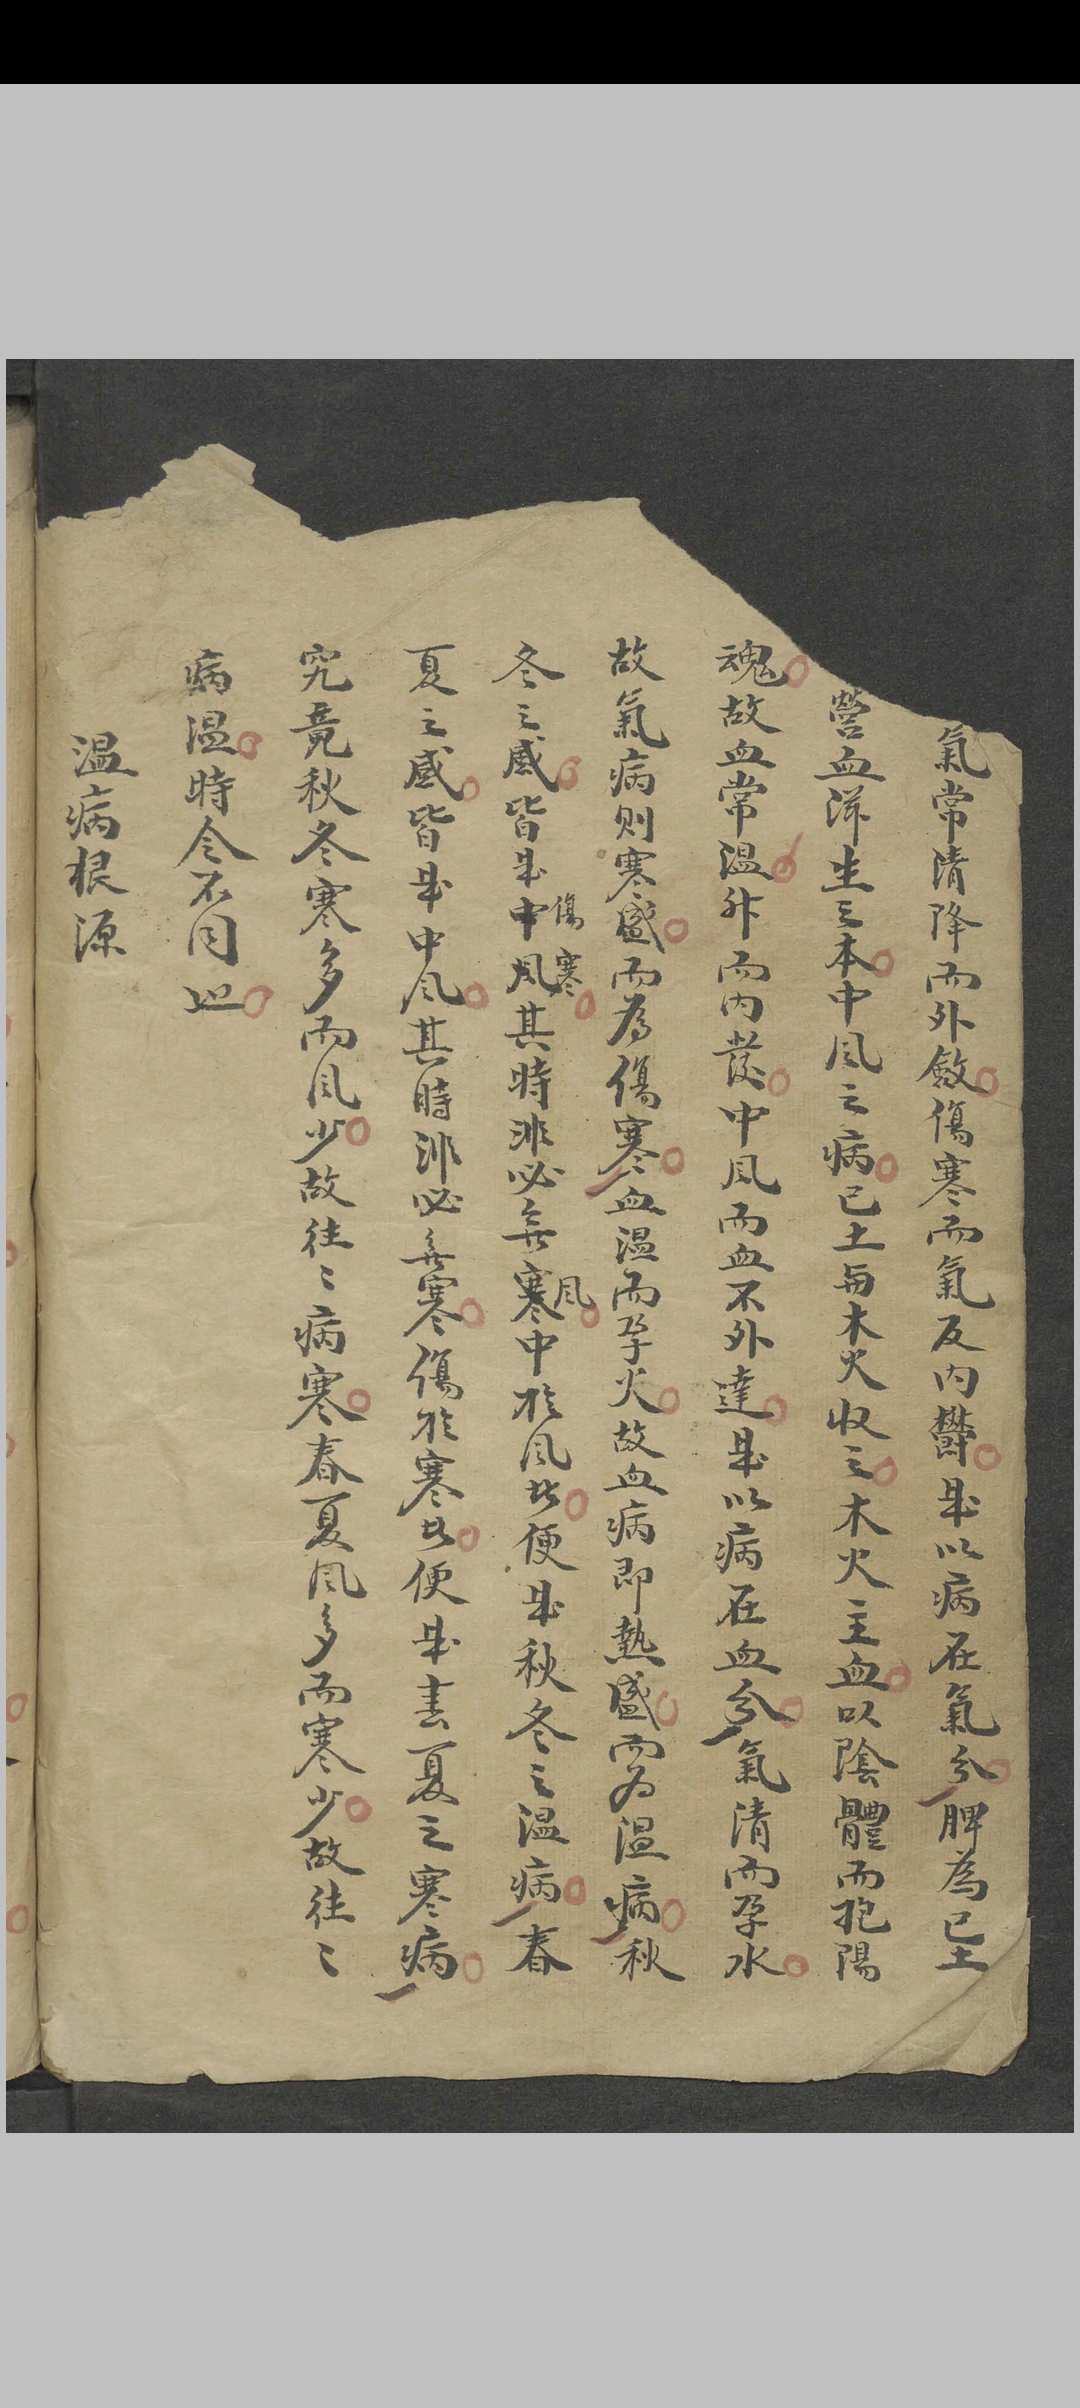 氣常清降而外斂傷寒而氣反内欝是以病在氣分脾為己土
營血滋生之本中風之病己土与木火收之木火主血以陰體而抱陽
魂故血常温升而内發中風而血不外達是以病在血分氣清而孕水
故氣病则寒盛而為傷寒血温而孕火故血病即熱盛而为温病秋
冬之感皆是中風傷寒其時非必無寒風中於風者便是秋冬之温病春
夏之感皆是中風其時非必無寒傷於寒者便是春夏之寒病
究竟秋冬寒多而風少故往〻病寒春夏風多而寒少故往〻
病温時令不同也
温病根源